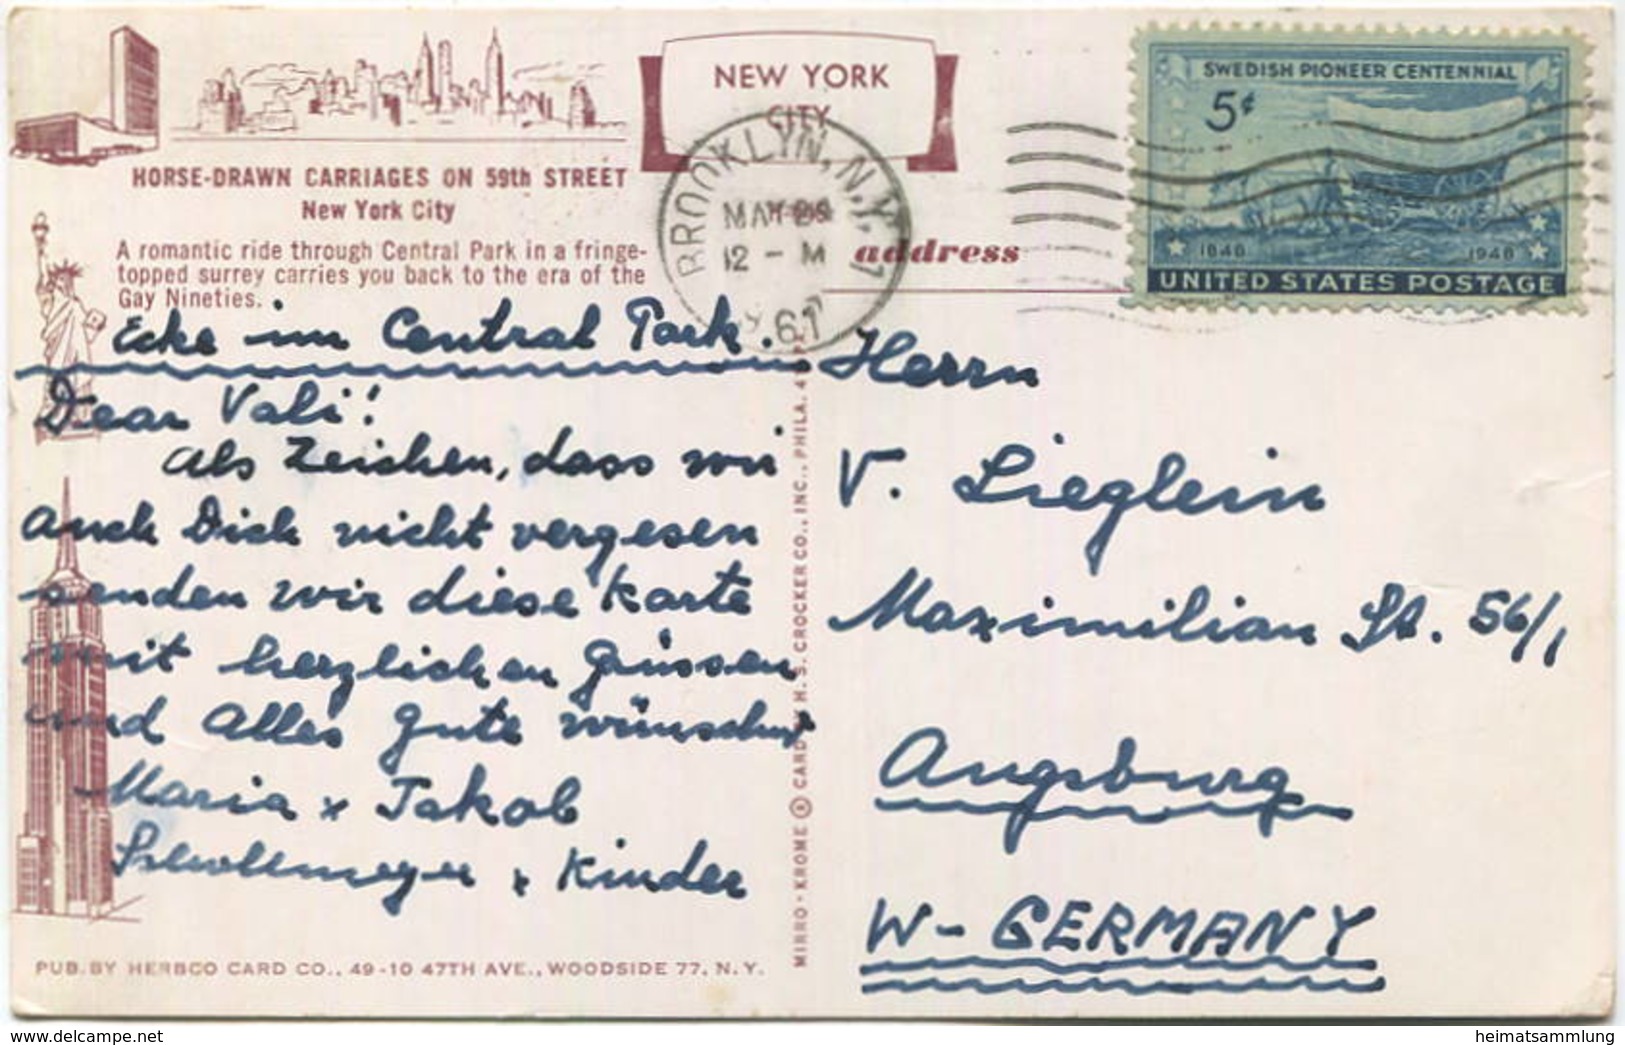 NEW YORK
CITY
HORSE-DRAWN CARRIAGES ON 59th STREET
New York City
A romantic ride through Central Park in a fringe-
topped surrey carries you back to the era of the
Gay Nineties.
Ecke im Central Park.
Dear Vali!
Als Zeichen, dass wir
auch Dich nicht vergesen
senden wir diese Karte
mit herzlichen Grüssen
und alles Gute wünschend
Maria + Jakob
+ Kinder
PUB. BY HERBCO CARD CO., 49-10 47TH AVE., WOODSIDE 77, N.Y.
MIRRO-KROME ® CARD BY H. S. CROCKER CO., INC., PHILA. 4
BROOKLYN, N.Y. 1
MAY
12 - M
1961
address
SWEDISH PIONEER CENTENNIAL
5¢
1848 1948
UNITED STATES POSTAGE
Herrn
V. Lieglein
Maximilian St. 56/1
Augsburg
W-GERMANY
delcampe.net
heimatsammlung